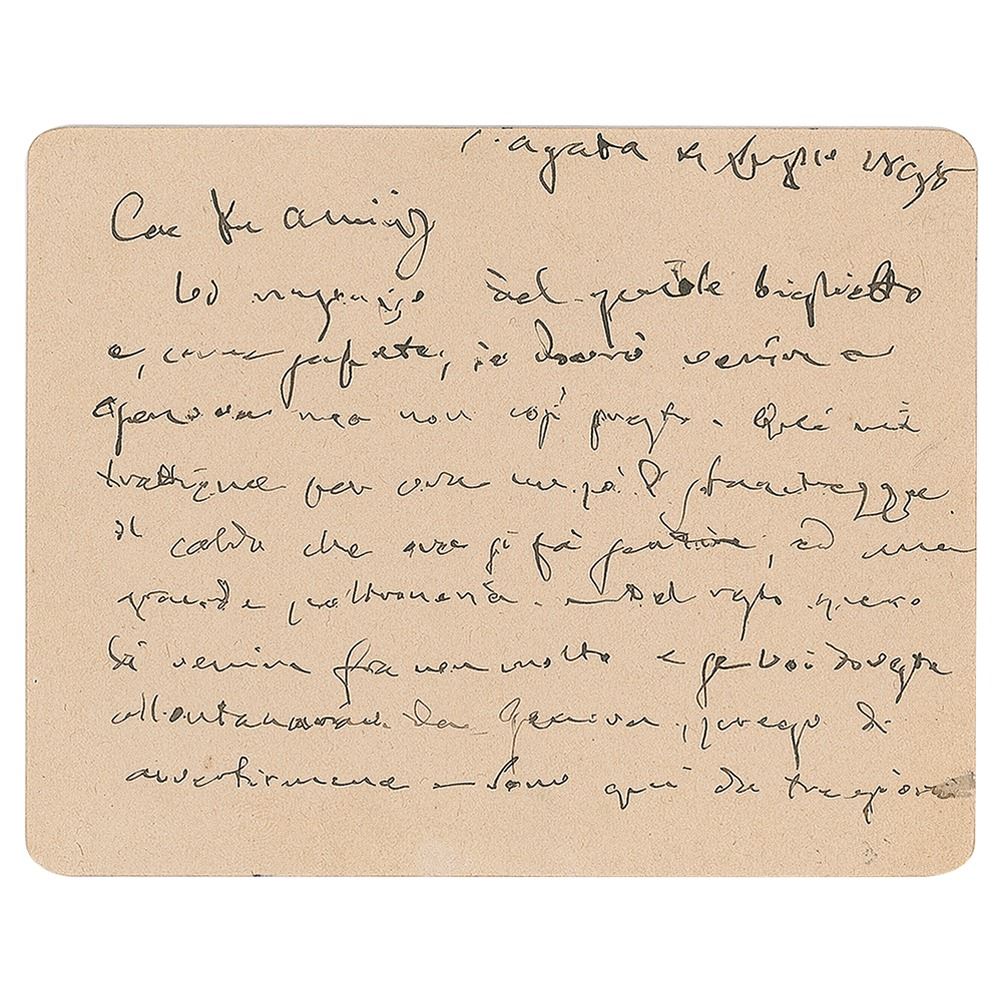 S. Agata Luglio 1898
Car amico
Vi ringrazio del gentile biglietto
e, come sapete, io dovrò venire a
Genova ma non così presto. Qui mi
trattiene per ora un pò d'
il caldo che ora si fà sentire, ed una
grande poltroneria. — Del resto spero
di venire fra non molto e se Voi doveste
allontanarvi da Genova, prego di
avvertirmene — Sono quì da tre giorni